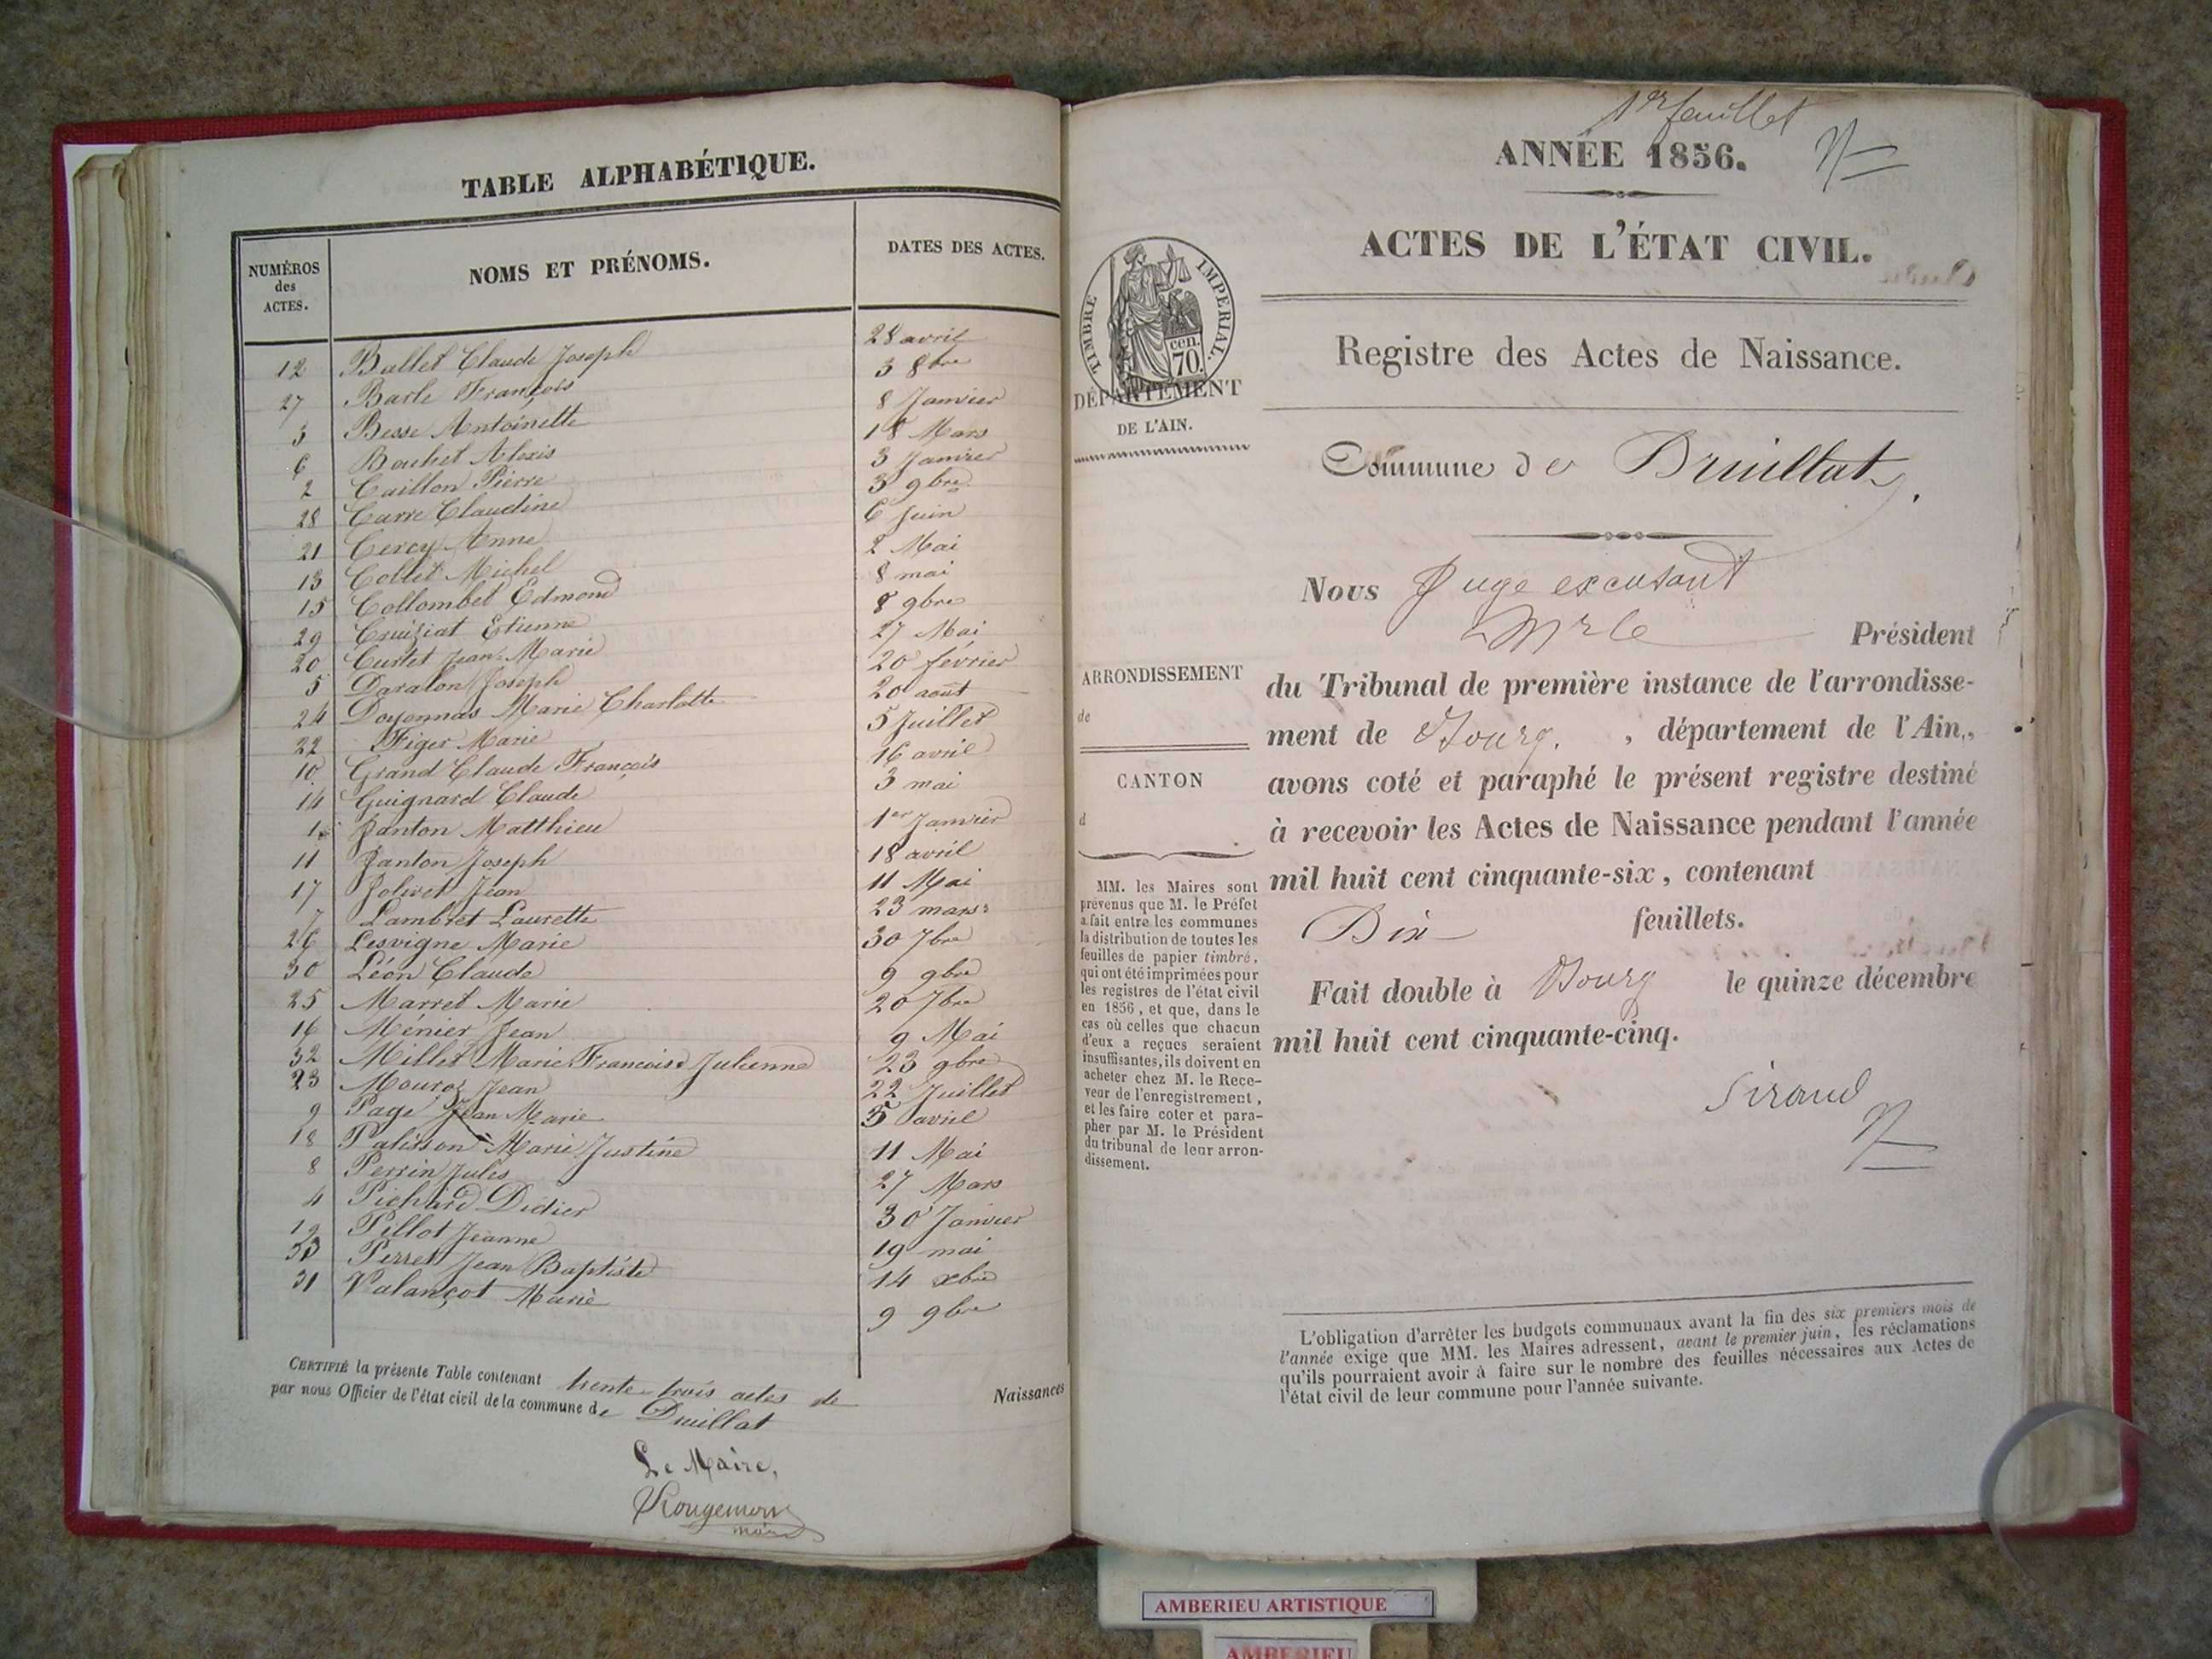 TABLE ALPHABÉTIQUE.
NUMÉROS des ACTES. NOMS ET PRÉNOMS. DATES DES ACTES.
12 Ballet Claude Joseph 28 avril
27 Barle François 3 8bre
3 Besse Antoinette 8 Janvier
6 Bouhet Alexis 18 Mars
2 Caillon Pierre 3 Janvier
28 Carre Claudine 3 9bre
21 Cercy Anne 6 Juin
13 Collet Michel 2 Mai
15 Collombet Edmond 8 mai
29 Cruiziat Etienne 8 9bre
20 Curtet Jean-Marie 27 Mai
5 Daralon Joseph 20 février
24 Doyonnas Marie Charlotte 20 août
22 Figer Marie 5 Juillet
10 Grand Claude François 16 avril
14 Guignard Claude 3 mai
1 Janton Matthieu 1er Janvier
11 Janton Joseph 18 avril
17 Jolivet Jean 11 Mai
7 Lambret Laurette 23 mars
26 Lesvigne Marie 30 7bre
30 Léon Claude 9 9bre
25 Marret Marie 20 7bre
16 Ménier Jean 9 Mai
32 Millet Marie Francoise Julienne 23 9bre
23 Mouroz Jean 22 Juillet
9 Page Jean Marie 5 avril
18 Palisson Marie Justine 11 Mai
8 Perrin Jules 27 Mars
4 Pichard Didier 30 Janvier
19 Pillot Jeanne 19 mai
33 Perret Jean Baptiste 14 xbre
31 Valançot Marie 9 9bre
CERTIFIÉ la présente Table contenant trente-trois actes de Naissances
par nous Officier de l'état civil de la commune de Druillat
Le Maire,
Rougemont
maire
1er feuillet
ANNÉE 1856.
ACTES DE L'ÉTAT CIVIL.
TIMBRE IMPERIAL.
cen.
70.
Registre des Actes de Naissance.
DÉPARTEMENT
DE L'AIN.
Commune de Druillat,
Nous Juge excusant
Mr le Président
ARRONDISSEMENT
de
CANTON
d
du Tribunal de première instance de l'arrondisse-
ment de Bourg. , département de l'Ain,
avons coté et paraphé le présent registre destiné
à recevoir les Actes de Naissance pendant l'année
mil huit cent cinquante-six, contenant
Dix feuillets.
Fait double à Bourg le quinze décembre
mil huit cent cinquante-cinq.
Sirand
MM. les Maires sont
prévenus que M. le Préfet
a fait entre les communes
la distribution de toutes les
feuilles de papier timbré,
qui ont été imprimées pour
les registres de l'état civil
en 1856, et que, dans le
cas où celles que chacun
d'eux a reçues seraient
insuffisantes, ils doivent en
acheter chez M. le Rece-
veur de l'enregistrement,
et les faire coter et para-
pher par M. le Président
du tribunal de leur arron-
dissement.
L'obligation d'arrêter les budgets communaux avant la fin des six premiers mois de
l'année exige que MM. les Maires adressent, avant le premier juin, les réclamations
qu'ils pourraient avoir à faire sur le nombre des feuilles nécessaires aux Actes de
l'état civil de leur commune pour l'année suivante.
AMBERIEU ARTISTIQUE
AMBERIEU